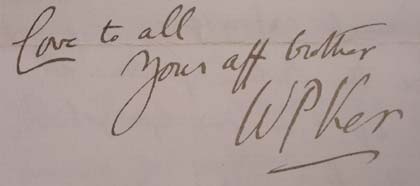 Love to all
Your aff brother
WPKer